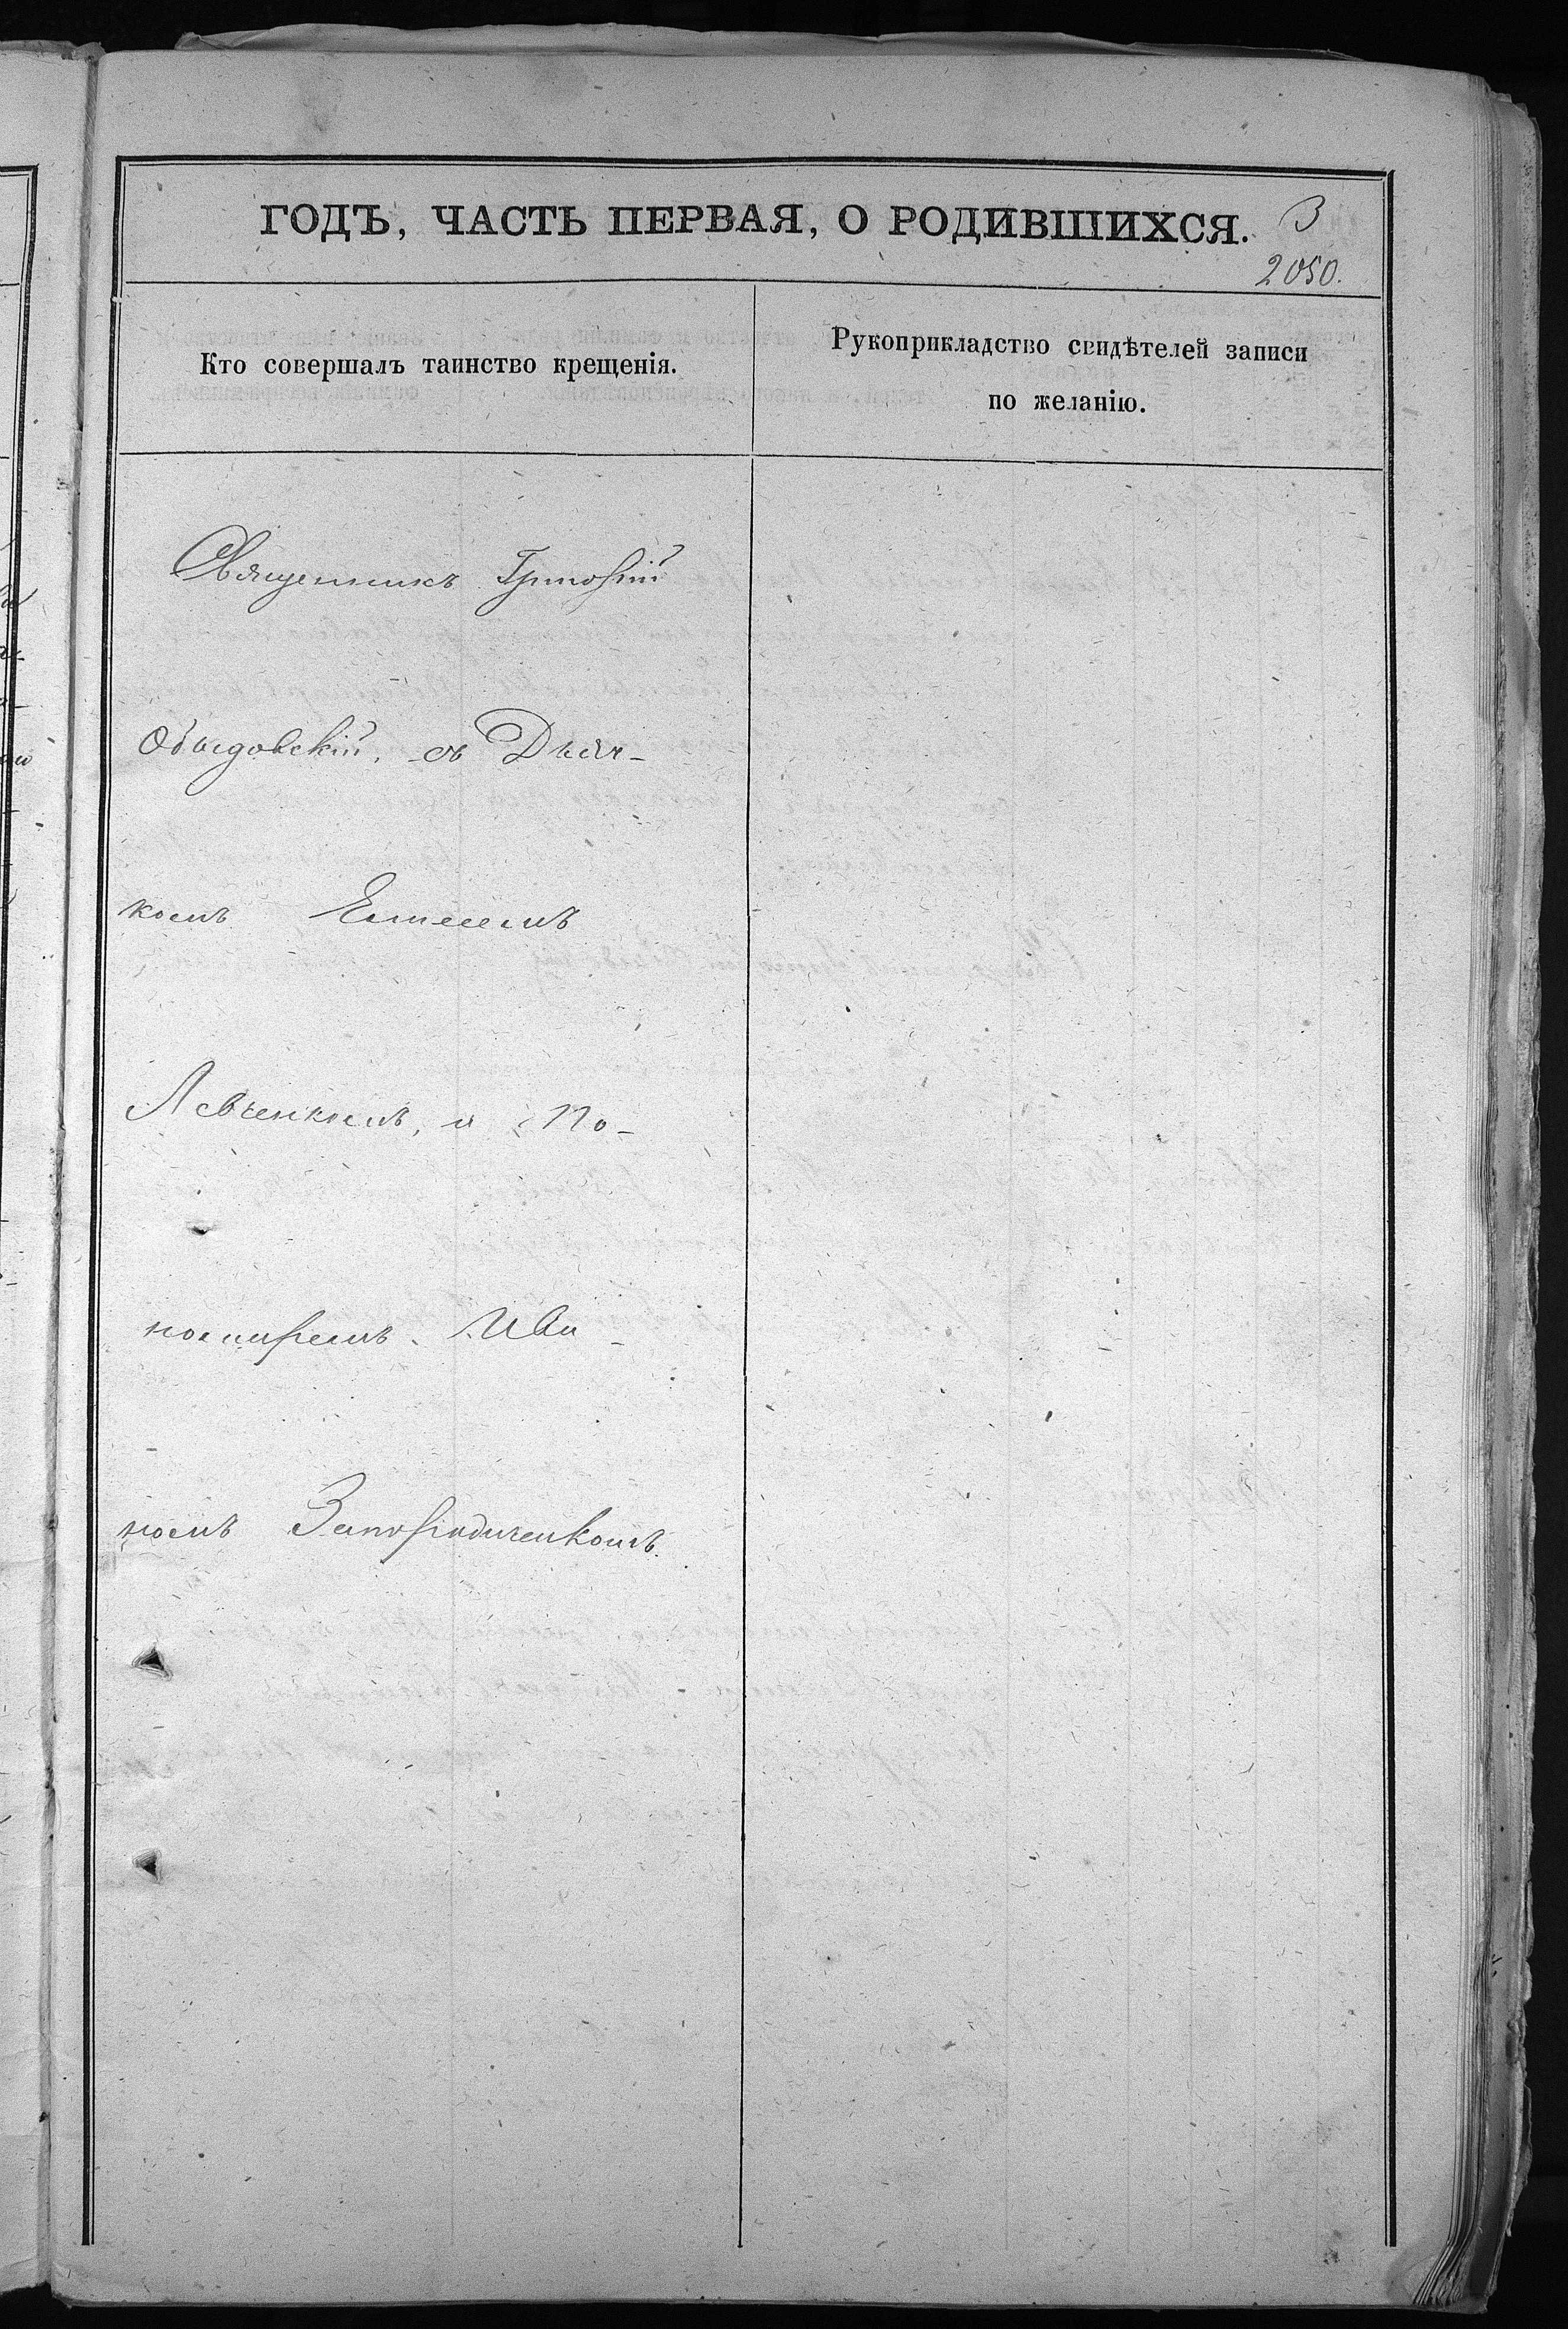 ГОДЪ, ЧАСТЬ ПЕРВАЯ, О РОДИВШИХСЯ. 3
2050.
Кто совершалъ таинство крещенія.
Рукоприкладство свидѣтелей записи
по желанію.
Священникъ Григорій
Обыдовскій, съ Дьяч-
комъ
Левченкомъ, и По-
номаремъ Ива-
номъ Запорожченкомъ.